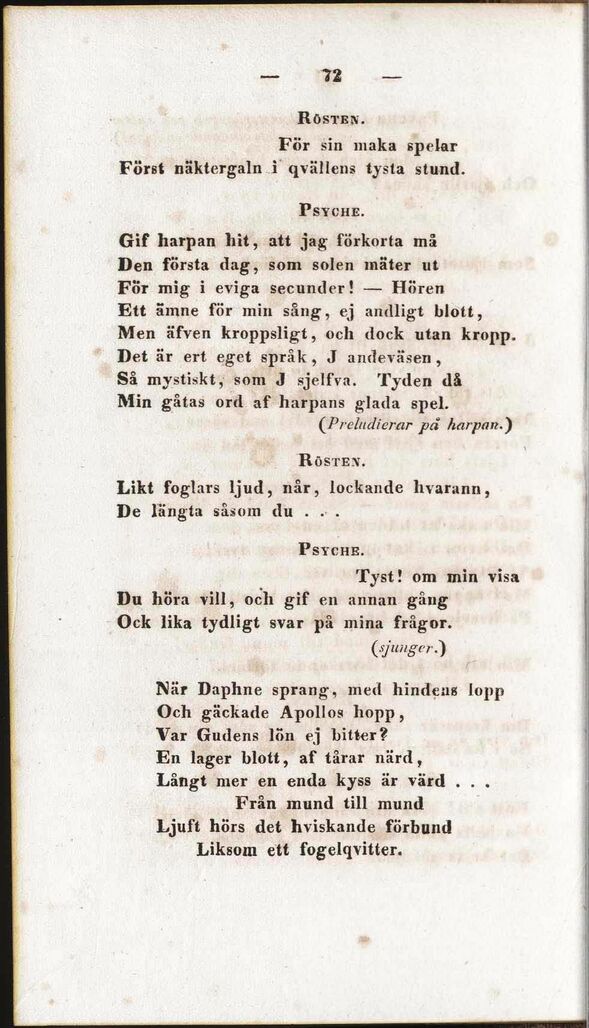 — 72 —
RÖSTEN.
För sin maka spelar
Först näktergaln i qvällens tysta stund.
PSYCHE.
Gif harpan hit, att jag förkorta må
Den första dag, som solen mäter ut
För mig i eviga secunder! — Hören
Ett ämne för min sång, ej andligt blott,
Men äfven kroppsligt, och dock utan kropp.
Det är ert eget språk, J andeväsen,
Så mystiskt, som J sjelfva. Tyden då
Min gåtas ord af harpans glada spel.
(Preludierar på harpan.)
RÖSTEN.
Likt foglars ljud, når, lockande hvarann,
De längta såsom du . . .
PSYCHE.
Tyst! om min visa
Du höra vill, och gif en annan gång
Ock lika tydligt svar på mina frågor.
(sjunger.)
När Daphne sprang, med hindens lopp
Och gäckade Apollos hopp,
Var Gudens lön ej bitter?
En lager blott, af tårar närd,
Långt mer en enda kyss är värd . . .
Från mund till mund
Ljuft hörs det hviskande förbund
Liksom ett fogelqvitter.